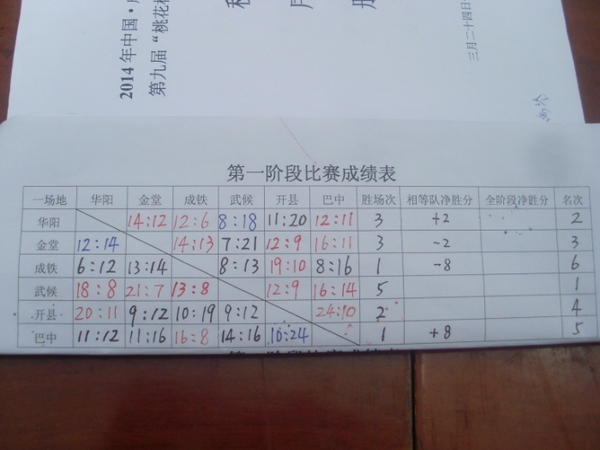 2014年中国·
第九届“桃花
秩
册
三月二十四日
第一阶段比赛成绩表
一场地 华阳 金堂 成铁 武候 开县 巴中 胜场次 相等队净胜分 全阶段净胜分 名次
华阳 14:12 12:6 8:18 11:20 12:11 3 +2 2
金堂 12:14 14:13 7:21 12:9 16:11 3 -2 3
成铁 6:12 13:14 8:13 19:10 8:16 1 -8 6
武候 18:8 21:7 13:8 12:9 16:14 5 1
开县 20:11 9:12 10:19 9:12 24:10 2 4
巴中 11:12 11:16 16:8 14:16 10:24 1 +8 5